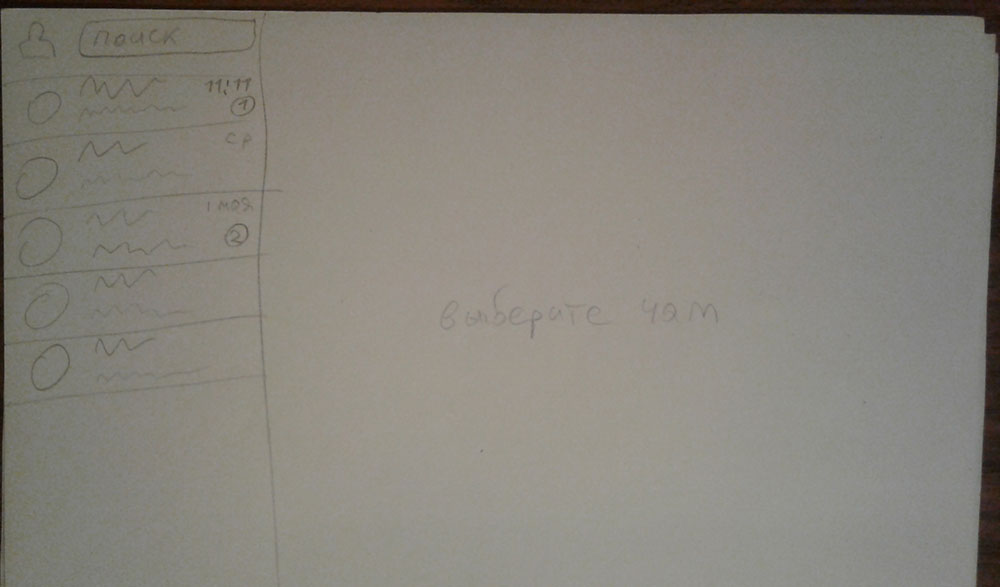 поиск
11:11
1
ср
1 мая
2
выберите чат